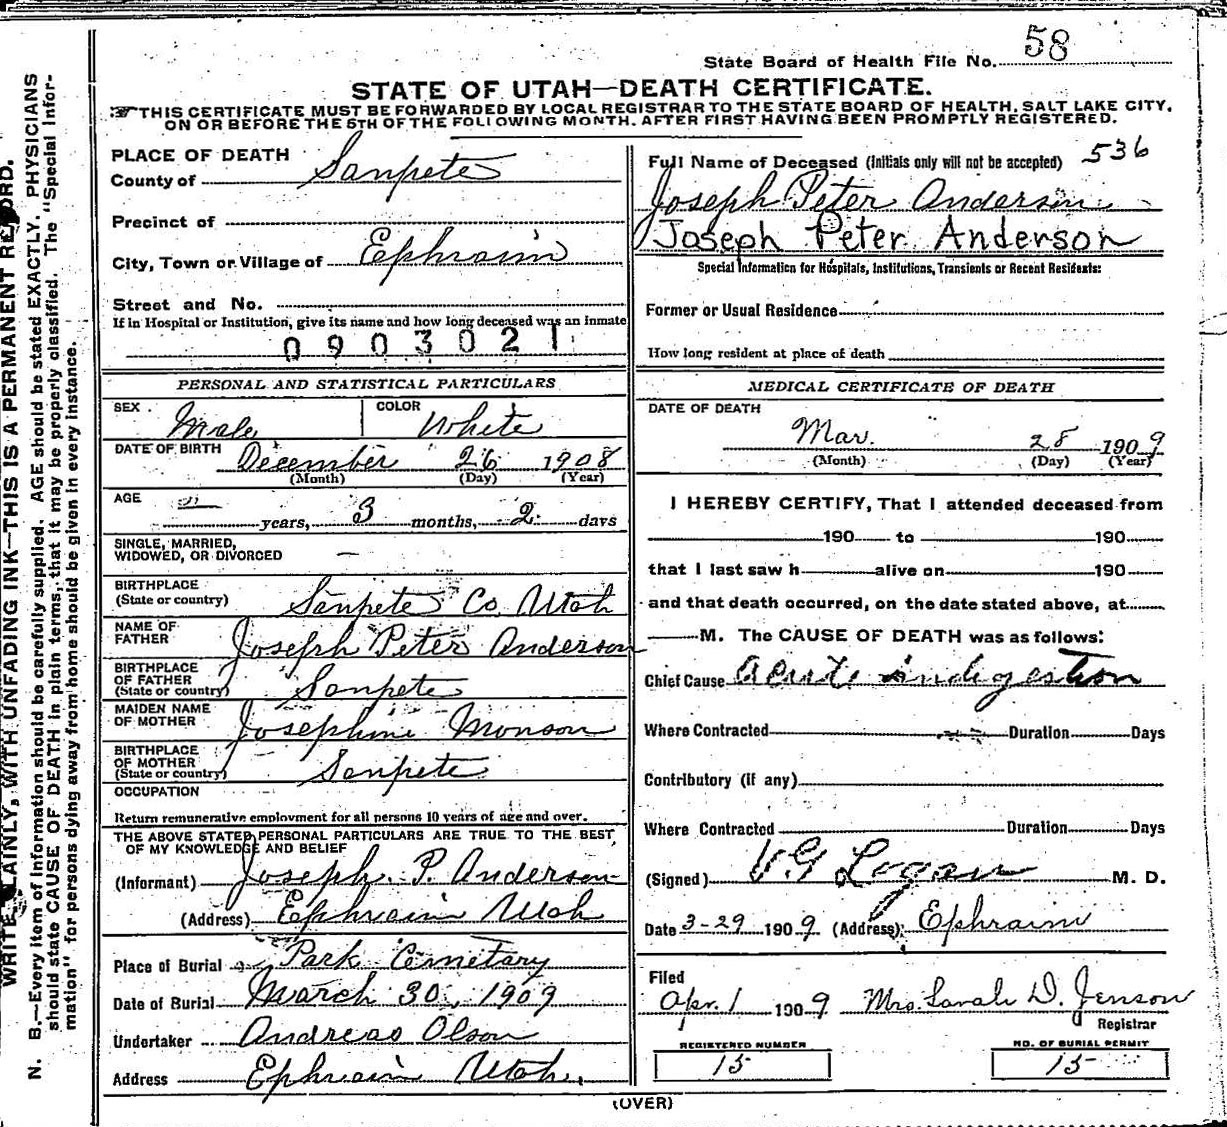 58
State Board of Health File No.
STATE OF UTAH—DEATH CERTIFICATE.
THIS CERTIFICATE MUST BE FORWARDED BY LOCAL REGISTRAR TO THE STATE BOARD OF HEALTH, SALT LAKE CITY,
ON OR BEFORE THE 5TH OF THE FOLLOWING MONTH. AFTER FIRST HAVING BEEN PROMPTLY REGISTERED.
PLACE OF DEATH
County of Sanpete
Precinct of
City, Town or Village of Ephraim
Street and No.
If in Hospital or Institution, give its name and how long deceased was an Inmate
0903021
PERSONAL AND STATISTICAL PARTICULARS
SEX Male COLOR White
DATE OF BIRTH December 26 1908
(Month) (Day) (Year)
AGE — years, 3 months, 2 days
SINGLE, MARRIED,
WIDOWED, OR DIVORCED —
BIRTHPLACE
(State or country) Sanpete Co. Utah
NAME OF
FATHER Joseph Peter Anderson
BIRTHPLACE
OF FATHER
(State or country) Sanpete
MAIDEN NAME
OF MOTHER Josephine Monson
BIRTHPLACE
OF MOTHER
(State or country) Sanpete
OCCUPATION
Return remunerative employment for all persons 10 years of age and over.
THE ABOVE STATED PERSONAL PARTICULARS ARE TRUE TO THE BEST
OF MY KNOWLEDGE AND BELIEF
(Informant) Joseph. P. Anderson
(Address) Ephraim Utah
Place of Burial Park Cemetary
Date of Burial March 30, 1909
Undertaker Andreas Olson
Address Ephraim Utah.
Full Name of Deceased (Initials only will not be accepted) 536
Joseph Peter Anderson
Joseph Peter Anderson
Special Information for Hospitals, Institutions, Transients or Recent Residents:
Former or Usual Residence
How long resident at place of death
MEDICAL CERTIFICATE OF DEATH
DATE OF DEATH
Mar. 28 1909
(Month) (Day) (Year)
I HEREBY CERTIFY, That I attended deceased from
190 to 190
that I last saw h alive on 190
and that death occurred, on the date stated above, at
M. The CAUSE OF DEATH was as follows:
Chief Cause acute indigestion
Where Contracted Duration Days
Contributory (if any)
Where Contracted Duration Days
(Signed) V.G Logan M. D.
Date 3-29 1909. (Address) Ephraim
Filed
Apr. 1 1909 Mrs. Sarah D. Jenson
Registrar
REGISTERED NUMBER NO. OF BURIAL PERMIT
15 15
(OVER)
WRITE PLAINLY, WITH UNFADING INK—THIS IS A PERMANENT RECORD.
N. B.—Every item of information should be carefully supplied. AGE should be stated EXACTLY. PHYSICIANS
should state CAUSE OF DEATH in plain terms, that it may be properly classified. The "Special Infor-
mation" for persons dying away from home should be given in every instance.